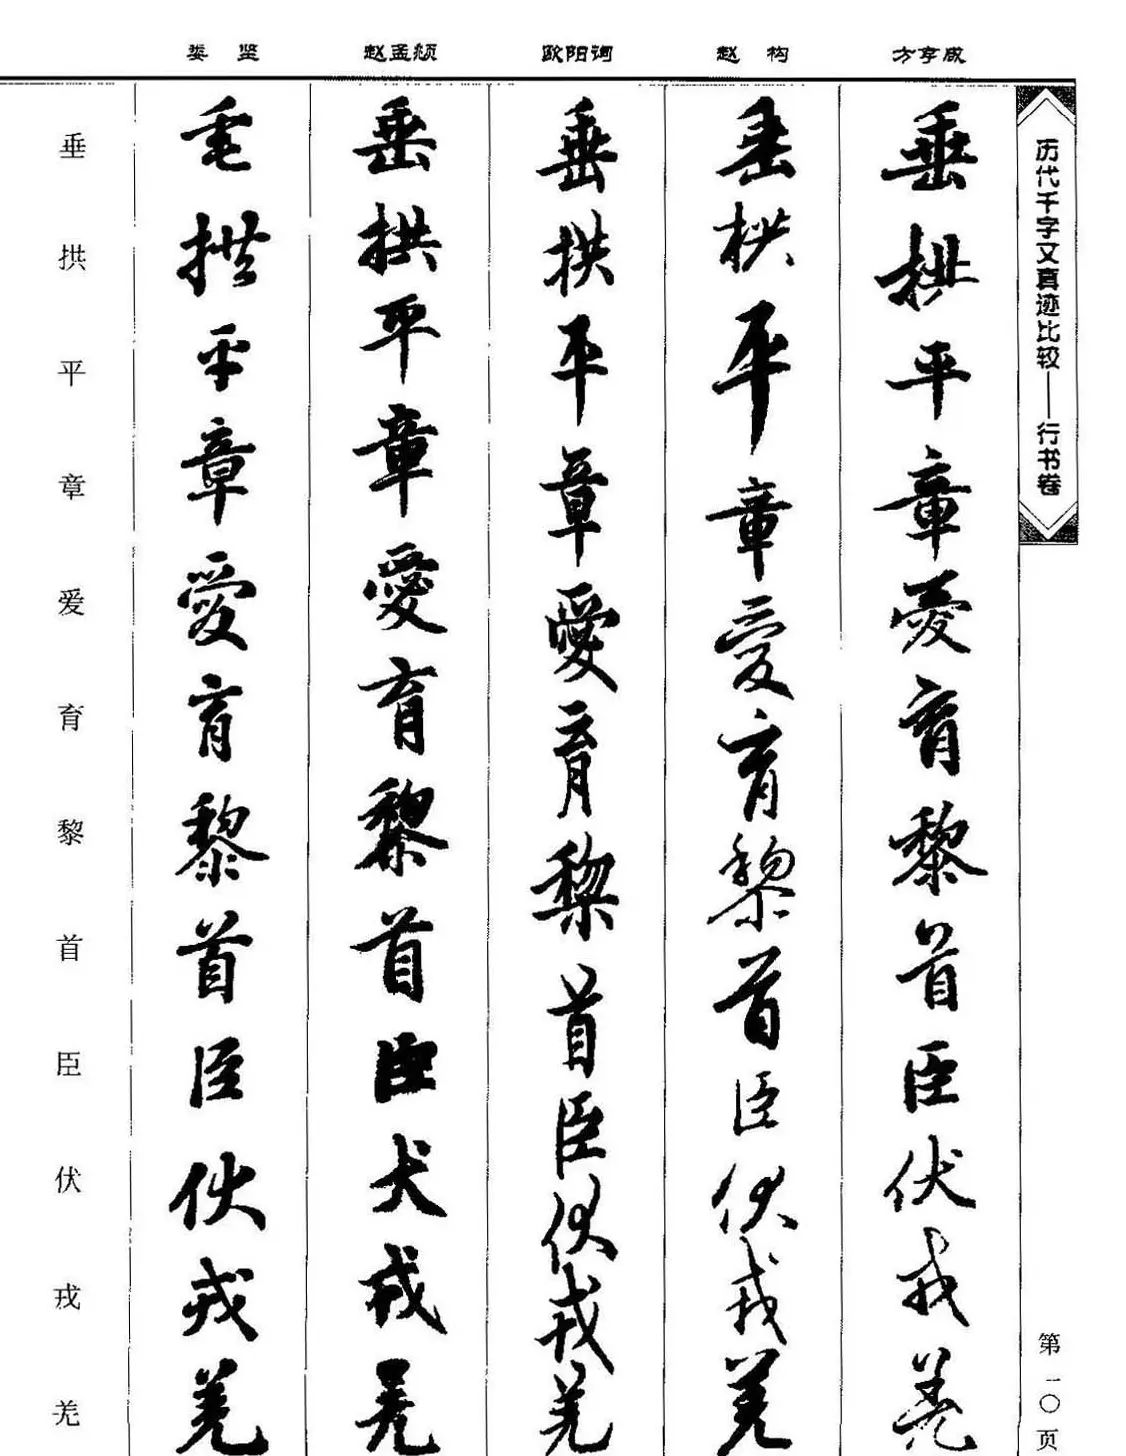 历代千字文真迹比较——行书卷
第一〇页
方亨咸
垂拱平章愛育黎首臣伏戎羌
赵构
垂拱平章愛育黎首臣伏戎羌
欧阳询
垂拱平章愛育黎首臣伏戎羌
赵孟頫
垂拱平章愛育黎首臣犬戎羌
娄坚
垂拱平章愛育黎首臣伏戎羌
垂拱平章爱育黎首臣伏戎羌